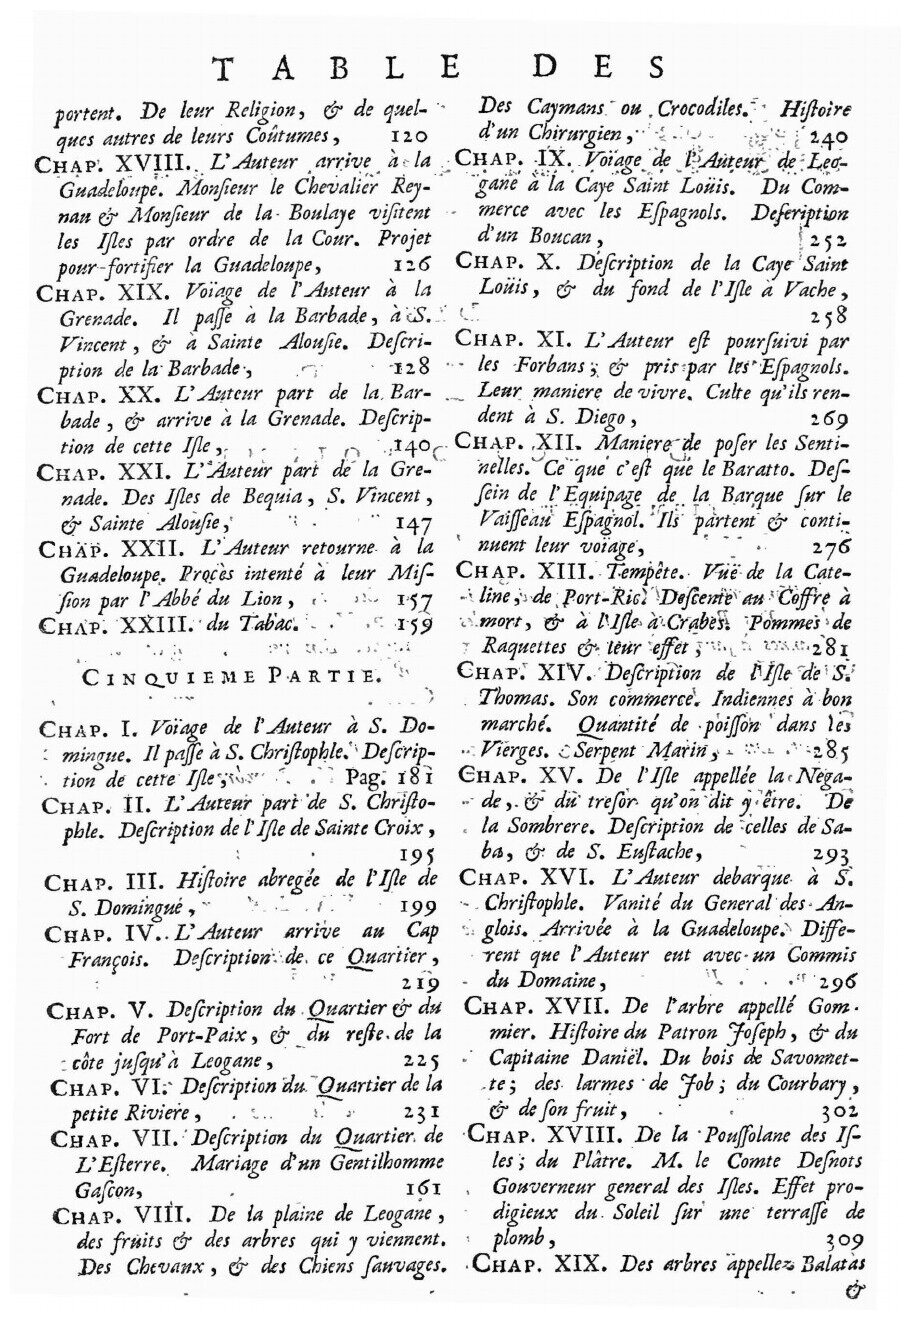 TABLE DES
portent. De leur Religion, & de quel-
ques autres de leurs Coûtumes, 120
CHAP. XVIII. L'Auteur arrive à la
Guadeloupe. Monſieur le Chevalier Rey-
nau & Monſieur de la Boulaye viſitent
les Iſles par ordre de la Cour. Projet
pour fortifier la Guadeloupe, 126
CHAP. XIX. Voïage de l'Auteur à la
Grenade. Il paſſe à la Barbade, à S.
Vincent, & à Sainte Alouſie. Deſcri-
ption de la Barbade, 128
CHAP. XX. L'Auteur part de la Bar-
bade, & arrive à la Grenade. Deſcrip-
tion de cette Iſle, 140
CHAP. XXI. L'Auteur part de la Gre-
nade. Des Iſles de Bequia, S. Vincent,
& Sainte Alouſie, 147
CHAP. XXII. L'Auteur retourne à la
Guadeloupe. Procès intenté à leur Miſ-
ſion par l'Abbé du Lion, 157
CHAP. XXIII. du Tabac. 159
CINQUIEME PARTIE.
CHAP. I. Voïage de l'Auteur à S. Do-
mingue. Il paſſe à S. Chriſtophle. Deſcrip-
tion de cette Iſle, Pag. 181
CHAP. II. L'Auteur part de S. Chriſto-
phle. Deſcription de l'Iſle de Sainte Croix,
195
CHAP. III. Hiſtoire abregée de l'Iſle de
S. Domingue, 199
CHAP. IV. L'Auteur arrive au Cap
François. Deſcription de ce Quartier,
219
CHAP. V. Deſcription du Quartier & du
Fort de Port-Paix, & du reſte de la
côte juſqu'à Leogane, 225
CHAP. VI. Deſcription du Quartier de la
petite Riviere, 231
CHAP. VII. Deſcription du Quartier de
L'Eſterre. Mariage d'un Gentilhomme
Gaſcon, 161
CHAP. VIII. De la plaine de Leogane,
des fruits & des arbres qui y viennent.
Des Chevaux, & des Chiens ſauvages.
Des Caymans ou Crocodiles. Hiſtoire
d'un Chirurgien, 240
CHAP. IX. Voïage de l'Auteur de Leo-
gane à la Caye Saint Loüis. Du Com-
merce avec les Eſpagnols. Deſcription
d'un Boucan, 252
CHAP. X. Deſcription de la Caye Saint
Loüis, & du fond de l'Iſle à Vache,
258
CHAP. XI. L'Auteur eſt pourſuivi par
les Forbans; & pris par les Eſpagnols.
Leur maniere de vivre. Culte qu'ils ren-
dent à S. Diego, 269
CHAP. XII. Maniere de poſer les Senti-
nelles. Ce que c'eſt que le Baratto. Deſ-
ſein de l'Equipage de la Barque ſur le
Vaiſſeau Eſpagnol. Ils partent & conti-
nuent leur voïage, 276
CHAP. XIII. Tempête. Vuë de la Cate-
line, de Port-Ric. Deſcente au Coffre à
mort, & à l'Iſle à Crabes. Pommes de
Raquettes & leur effet, 281
CHAP. XIV. Deſcription de l'Iſle de S.
Thomas. Son commerce. Indiennes à bon
marché. Quantité de poiſſon dans les
Vierges. Serpent Marin, 285
CHAP. XV. De l'Iſle appellée la Nega-
de, & du treſor qu'on dit y être. De
la Sombrere. Deſcription de celles de Sa-
ba, & de S. Euſtache, 293
CHAP. XVI. L'Auteur debarque à S.
Chriſtophle. Vanité du General des An-
glois. Arrivée à la Guadeloupe. Diffe-
rent que l'Auteur eut avec un Commis
du Domaine, 296
CHAP. XVII. De l'arbre appellé Gom-
mier. Hiſtoire du Patron Joſeph, & du
Capitaine Daniël. Du bois de Savonnet-
te; des larmes de Job; du Courbary,
& de ſon fruit, 302
CHAP. XVIII. De la Pouſſolane des Iſ-
les; du Plâtre. M. le Comte Deſnots
Gouverneur general des Iſles. Effet pro-
digieux du Soleil ſur une terraſſe de
plomb, 309
CHAP. XIX. Des arbres appellez Balatas
&